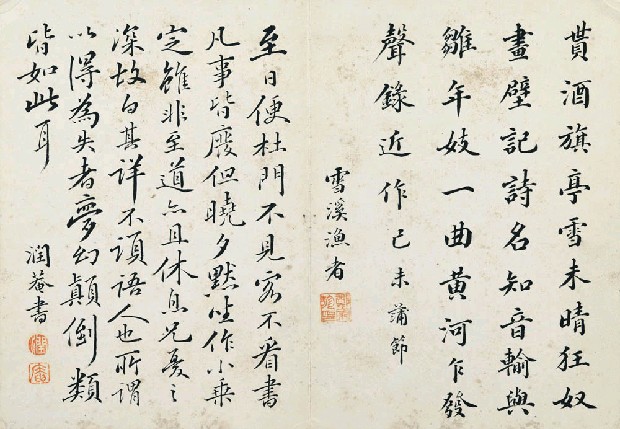 貰酒旗亭雪未晴狂奴
畫壁記詩名知音輸與
雛年妓一曲黃河乍發
聲錄近作己未蒲節
雪溪漁者
至日便杜門不見客不看書
凡事皆廢但曉夕默坐作小乘
定雖非至道亦且休息兄憂之
深故白其詳不須語人也所謂
以得為失者夢幻顛倒類
皆如此耳
潤菴書